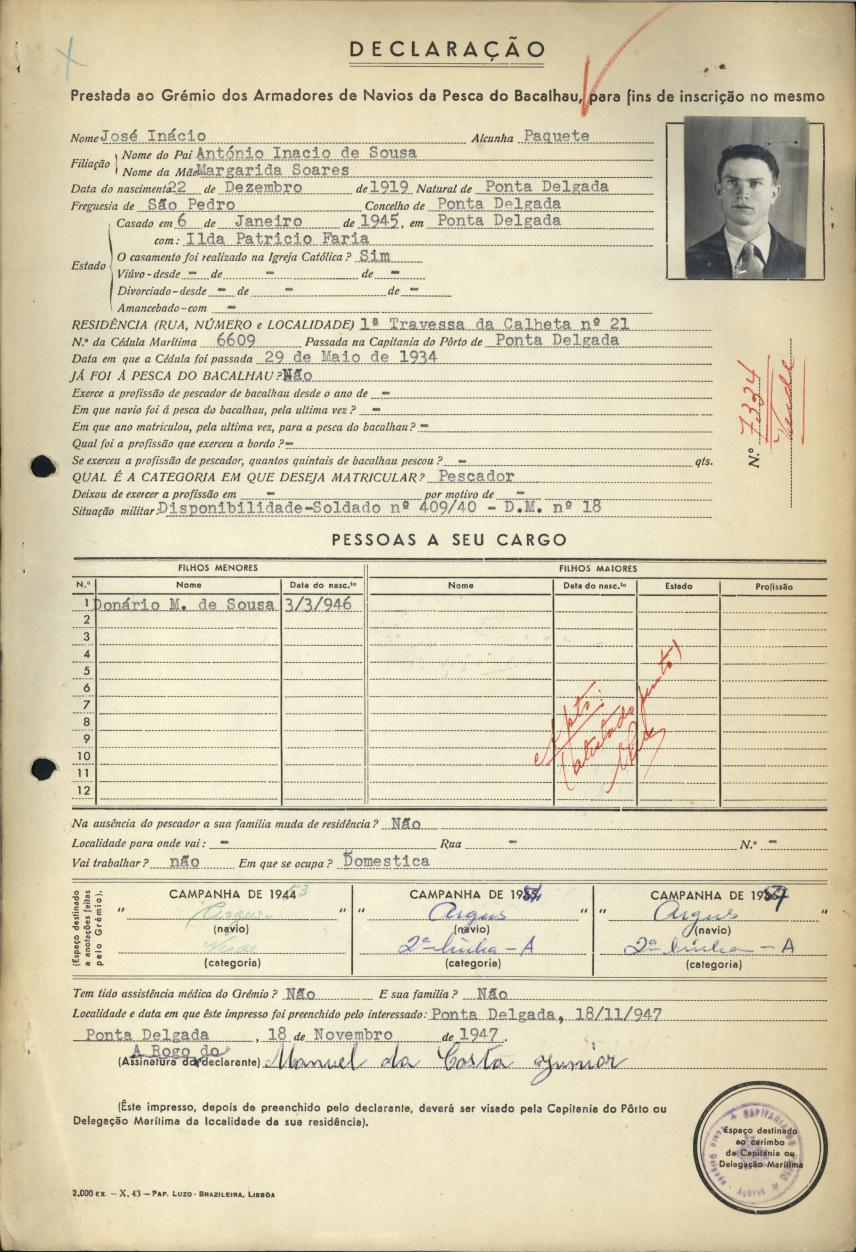 DECLARAÇÃO
Prestada ao Grémio dos Armadores de Navios da Pesca do Bacalhau, para fins de inscrição no mesmo
Nome José Inácio Alcunha Paquete
Filiação
Nome do Pai António Inacio de Sousa
Nome da Mãe Margarida Soares
Data do nascimento 22 de Dezembro de 1919 Natural de Ponta Delgada
Freguesia de São Pedro Concelho de Ponta Delgada
Estado
Casado em 6 de Janeiro de 1945, em Ponta Delgada
com: Ilda Patricio Faria
O casamento foi realizado na Igreja Católica? Sim
Viúvo-desde - de - de -
Divorciado-desde - de - de -
Amancebado-com -
RESIDÊNCIA (RUA, NÚMERO e LOCALIDADE) 1ª Travessa da Calheta nº 21
N.º da Cédula Marítima 6609 Passada na Capitania do Pôrto de Ponta Delgada
Data em que a Cédula foi passada 29 de Maio de 1934
JÁ FOI Á PESCA DO BACALHAU? Não
Exerce a profissão de pescador de bacalhau desde o ano de -
Em que navio foi á pesca do bacalhau, pela ultima vez? -
Em que ano matriculou, pela ultima vez, para a pesca do bacalhau? -
Qual foi a profissão que exerceu a bordo? -
Se exerceu a profissão de pescador, quantos quintais de bacalhau pescou? - qts.
QUAL É A CATEGORIA EM QUE DESEJA MATRICULAR? Pescador
Deixou de exercer a profissão em - por motivo de -
Situação militar: Disponibilidade-Soldado nº 409/40 - D.M. nº 18
N.º 7324
Verde
PESSOAS A SEU CARGO
FILHOS MENORES FILHOS MAIORES
N.º Nome Data do nasc.to Nome Data do nasc.to Estado Profissão
1 Donário M. de Sousa 3/3/946
2
3
4
5
6
7
8
9
10
11
12
Na ausência do pescador a sua familia muda de residência? Não
Localidade para onde vai: - Rua - N.º -
Vai trabalhar? não Em que se ocupa? Domestica
(Espaço destinado a anotações feitas pelo Grémio).
CAMPANHA DE 1944 53 CAMPANHA DE 1954 CAMPANHA DE 1957
" Argus " " Argus " " Argus "
(navio) (navio) (navio)
Verde 2ª linha - A 2ª linha - A
(categoria) (categoria) (categoria)
Tem tido assistência médica do Grémio? Não E sua familia? Não
Localidade e data em que êste impresso foi preenchido pelo interessado: Ponta Delgada, 18/11/947
Ponta Delgada, 18 de Novembro de 1947.
A Rogo do
(Assinatura do declarante) Manuel da Costa Junior
(Êste impresso, depois de preenchido pelo declarante, deverá ser visado pela Capitania do Pôrto ou
Delegação Marítima da localidade da sua residência).
Espaço destinado
ao carimbo
da Capitania ou
Delegação Marítima
2,000 ex. – X. 43 – PAP. LUZO-BRAZILEIRA, LISBÔA